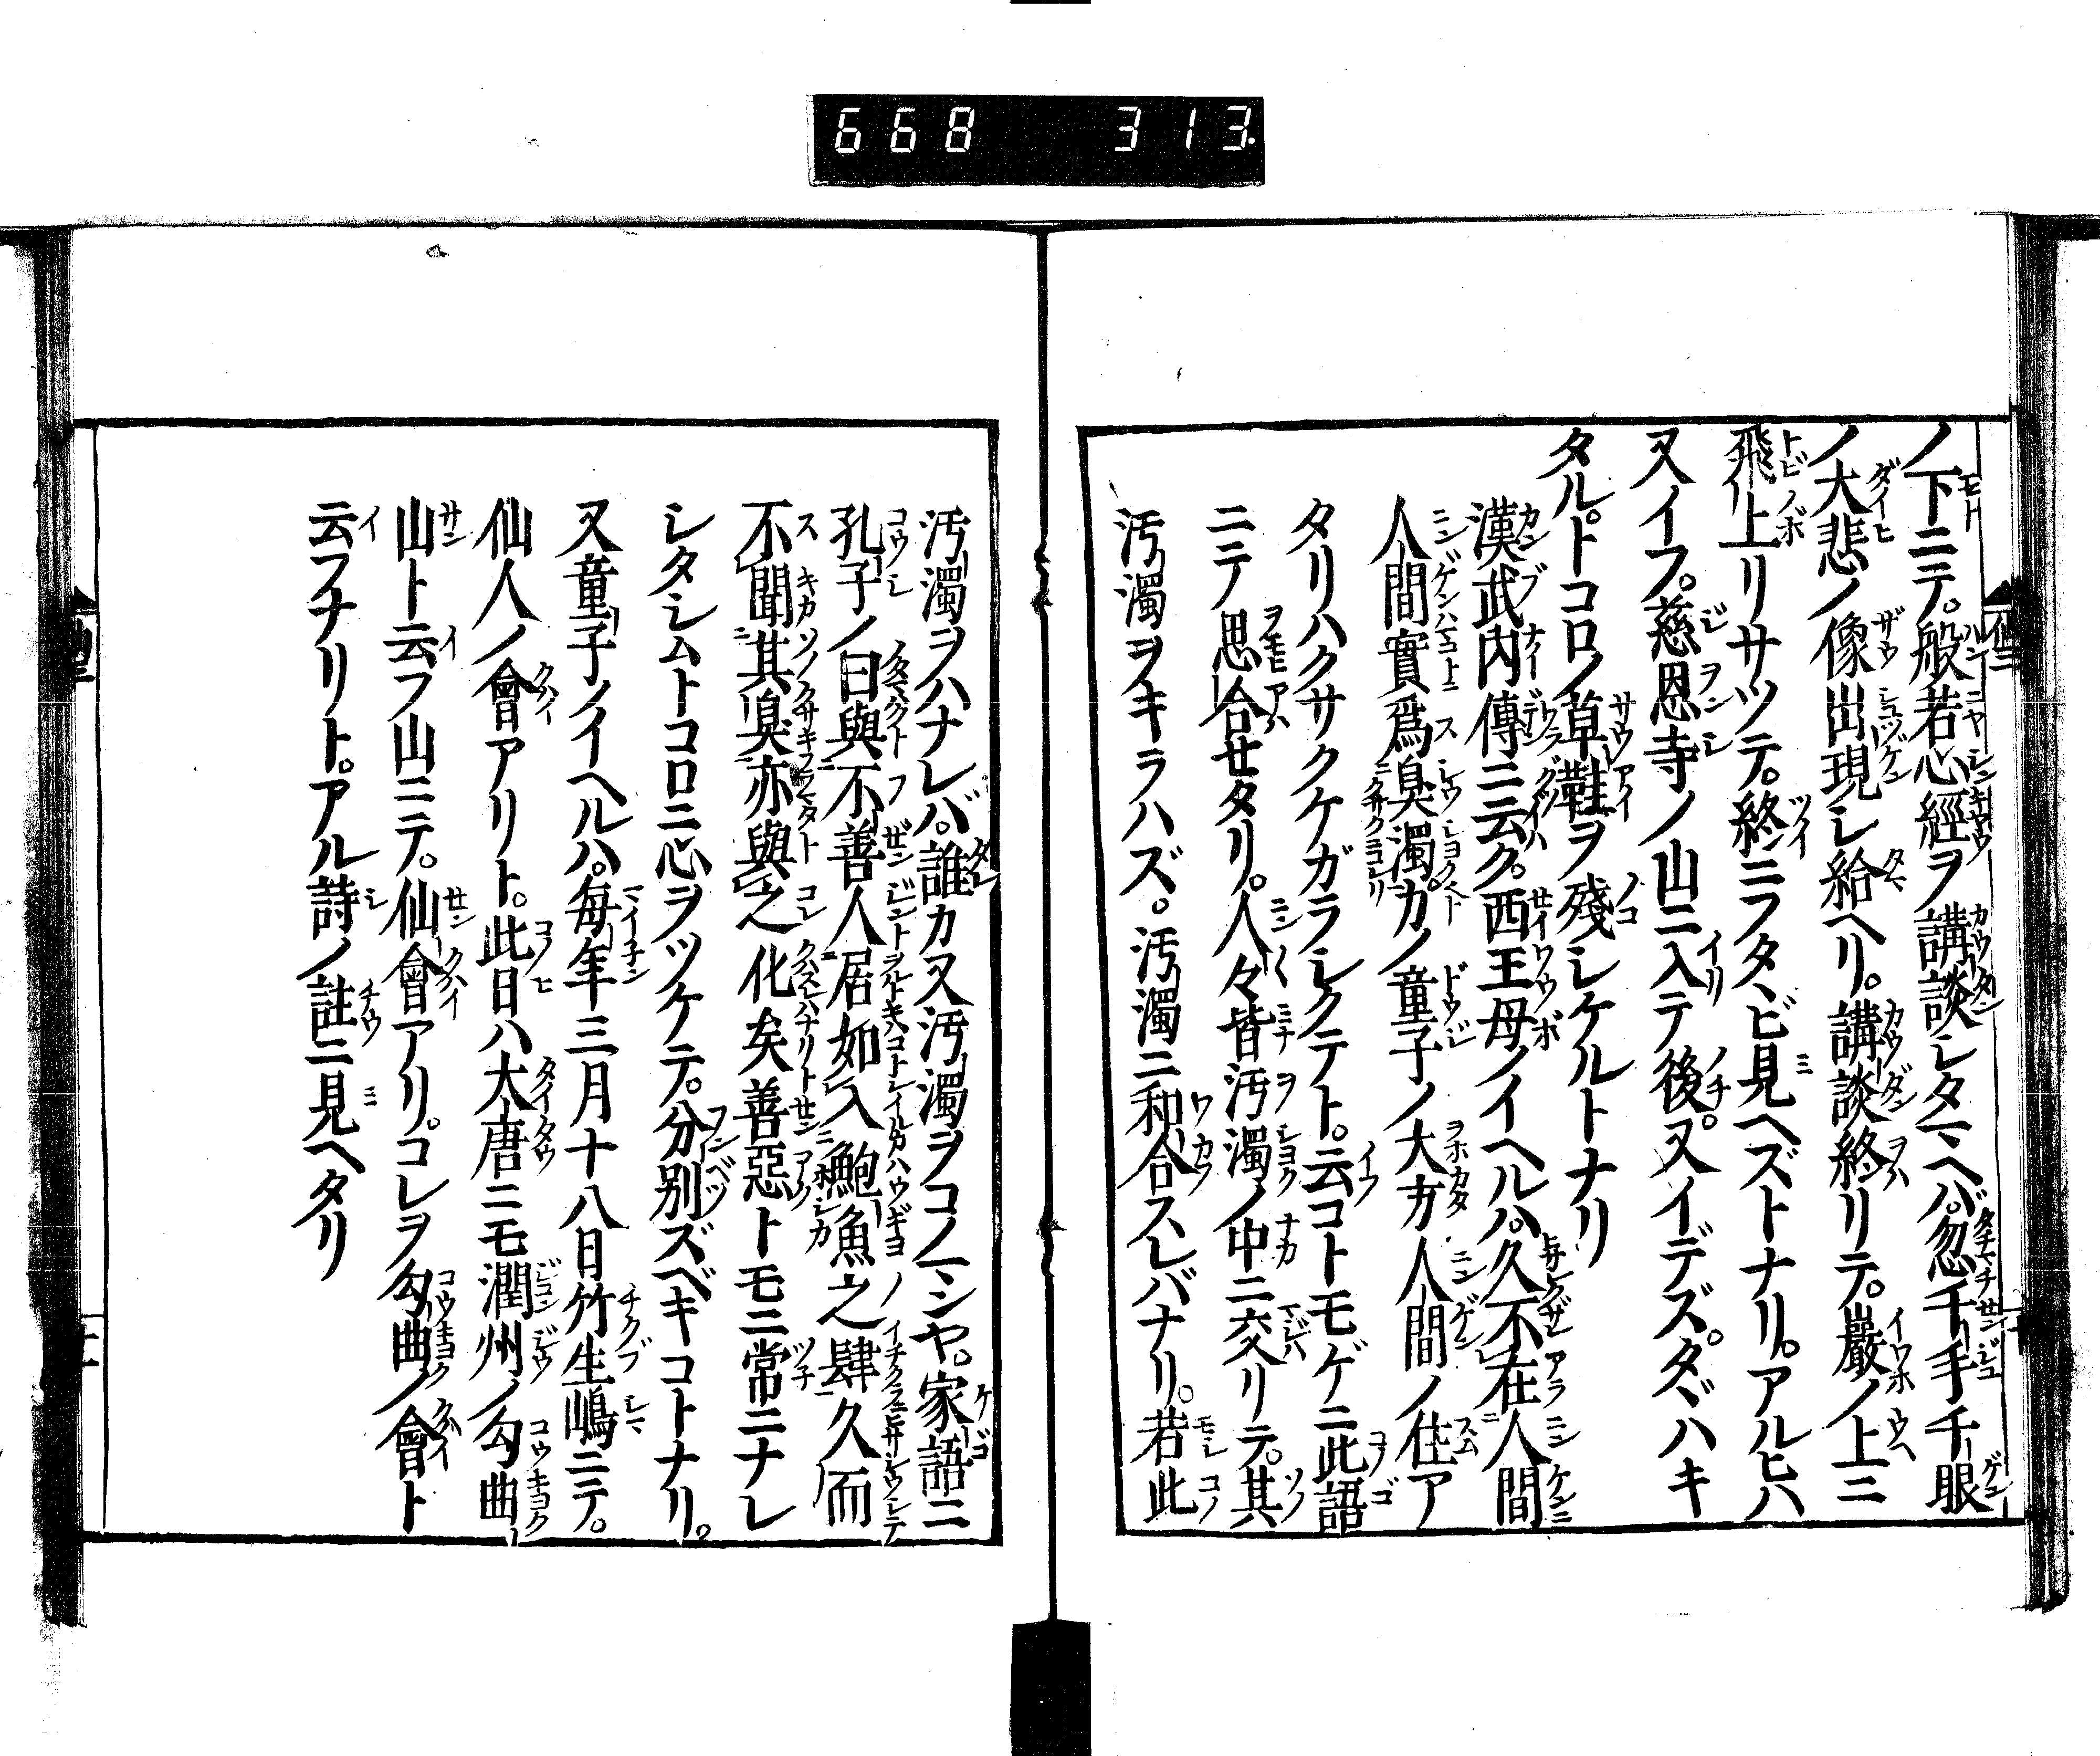 668 313
ノ下ニテ。般若心經ヲ講談シタマヘバ。忽千手千眼
ノ大悲ノ像出現シ給ヘリ。講談終リテ。巖ノ上ニ
飛上リサツテ。終ニフタヽビ見ヘズトナリ。アルヒハ
又イフ。慈恩寺ノ山ニ入テ後。又イデズ。タヾハキ
タルトコロノ草鞋ヲ殘シケルトナリ
漢武内傳ニ云ク。西王母ノイヘルハ。久不在人間
人間實爲臭濁。カノ童子ノ大方人間ノ住ア
タリハクサクケガラシクテト。云コトモゲニ此語
ニテ思合セタリ。人々皆汚濁ノ中ニ交リテ。其
汚濁ヲキラハズ。汚濁ニ和合スレバナリ。若此
汚濁ヲハナレバ。誰カ又汚濁ヲコノマンヤ。家語ニ
孔子ノ曰與不善人居如入鮑魚之肆久而
不聞其臭亦與之化矣善惡トモニ常ニナレ
シタシムトコロニ心ヲツケテ。分別ズベキコトナリ。
又童子ノイヘルハ。毎年三月十八日竹生嶋ニテ。
仙人ノ會アリト。此日ハ大唐ニモ潤州ノ勾曲
山ト云フ山ニテ。仙會アリ。コレヲ勾曲ノ會ト
云フナリト。アル詩ノ註ニ見ヘタリ